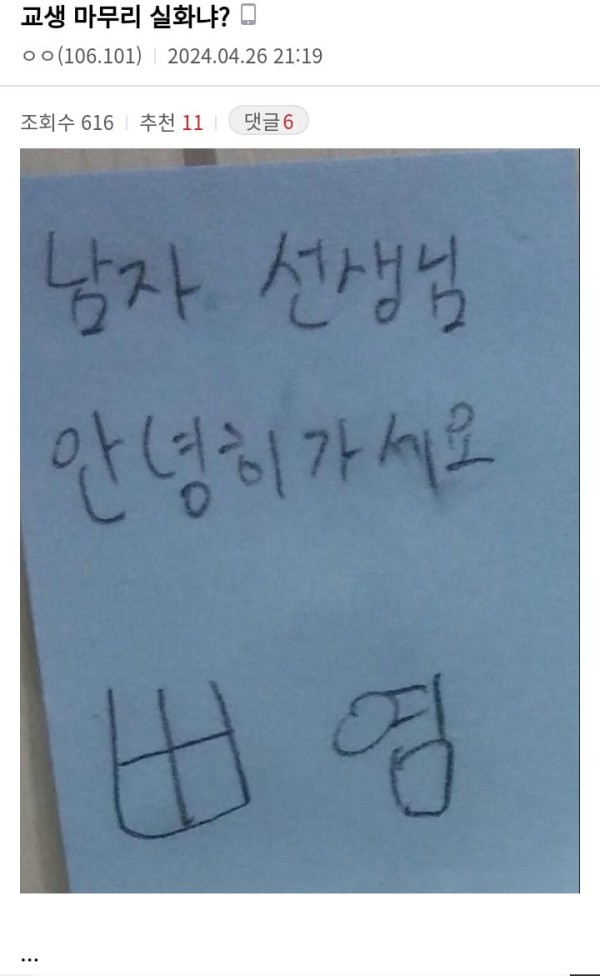 교생 마무리 실화냐?
ㅇㅇ(106.101) 2024.04.26 21:19
조회수 616 추천 11 댓글 6
남자 선생님
안녕히가세요
염
...